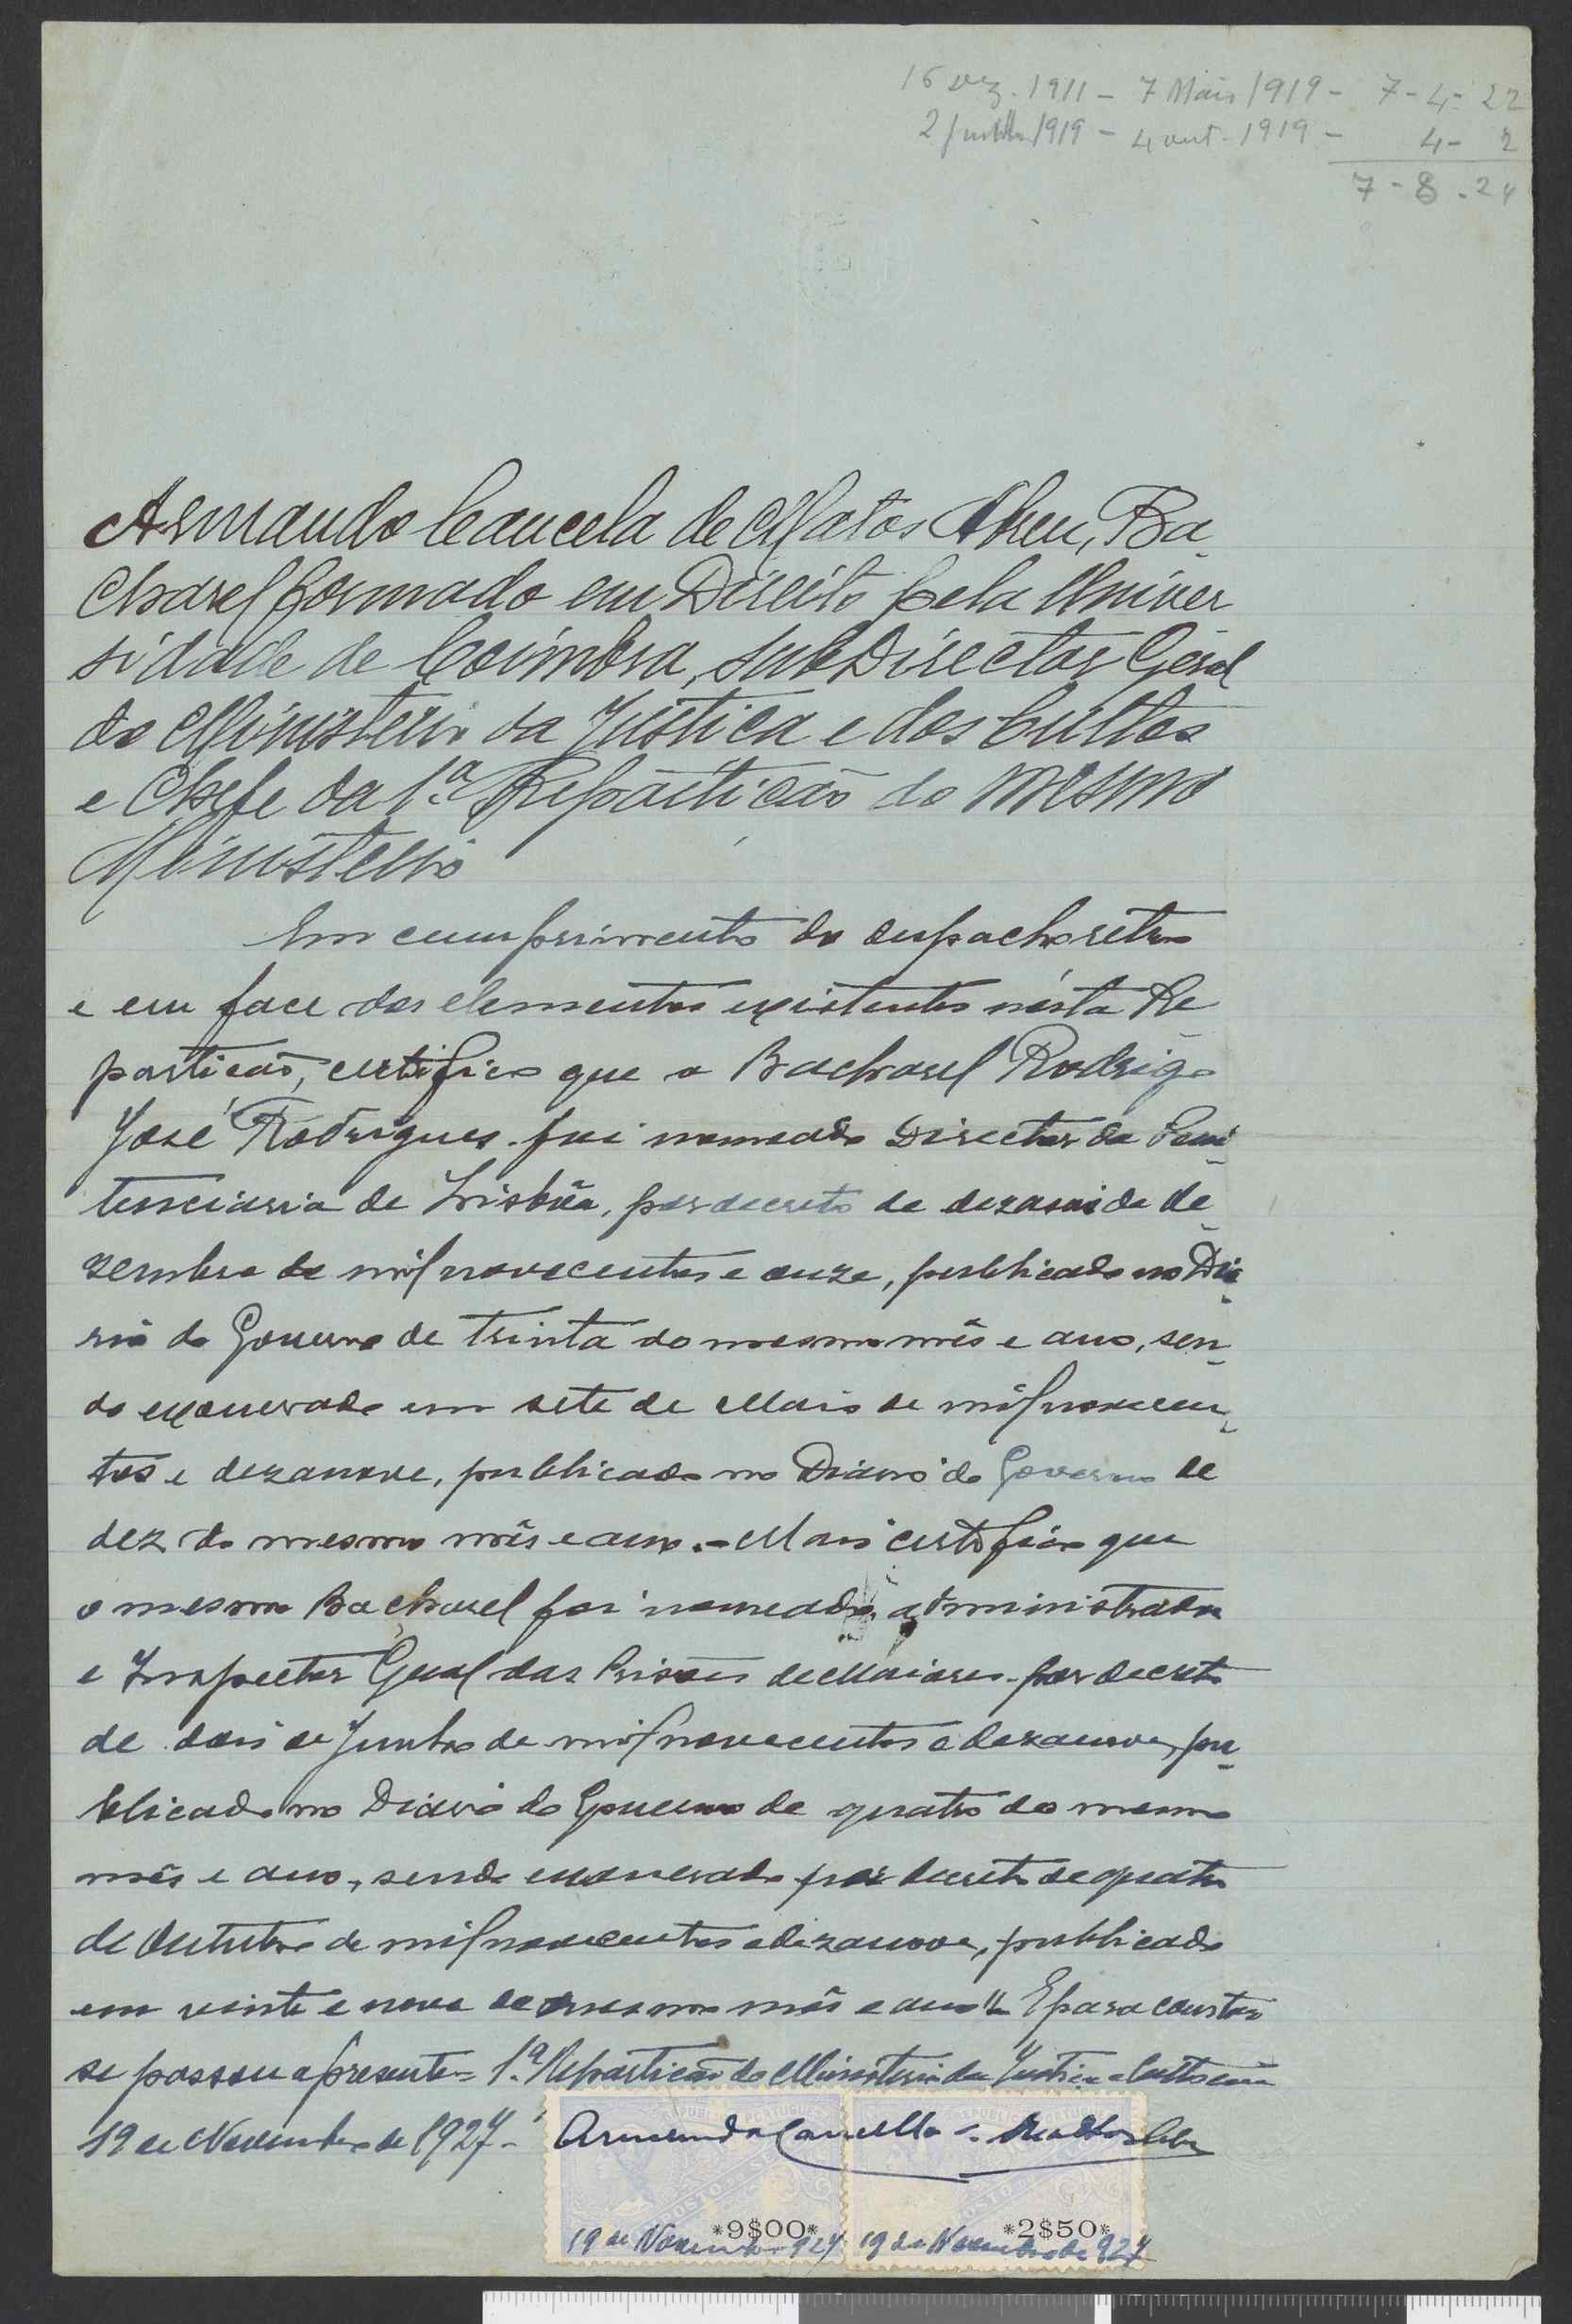 16 dez. 1911 - 7 Maio 1919 - 7 - 4 - 22
2 Junho 1919 - 4 out. 1919 - 4 - 2
7 - 8 - 24
Armando Cancela de Matos Abreu, Ba-
charel formado em Direito pela Univer
sidade de Coimbra, subDirector Geral
do Ministerio da Justica e dos Cultos
e Chefe da 1.ª Repartição do mesmo
Ministerio
Em cumprimento do despacho retro
e em face dos elementos existentes nésta Re-
partição, certifico que o Bacharel Rodrigo
José Rodrigues foi nomeado Director da Peni-
tenciaria de Lisbôa, por decreto de dezasseis de de-
zembro de mil novecentos e onze, publicado no Diá-
rio do Governo de trinta do mesmo mês e ano, sen-
do exonerado em sete de Maio de mil novecen-
tos e dezanove, publicado no Diario do Governo de
dez do mesmo mês e ano.- Mais certifico que
o mesmo Bacharel foi nomeado administrador
e Inspector Geral das Prisões de Maiores por decreto
de dois de Junho de mil novecentos e dezanove, pu-
blicado no Diario do Governo de quatro do mesmo
mês e ano, sendo exonerado por decreto de quatro
de Outubro de mil novecentos e dezanove, publicado
em vinte e nove do mesmo mês e ano. E para constar
se passou a presente = 1.ª Repartição do Ministerio da Justiça e Cultos em
19 de Novembro de 1927 - Armando Cancella de Mattos Abreu
*9$00* *2$50*
19 de Novembro 927 19 de Novembro de 927